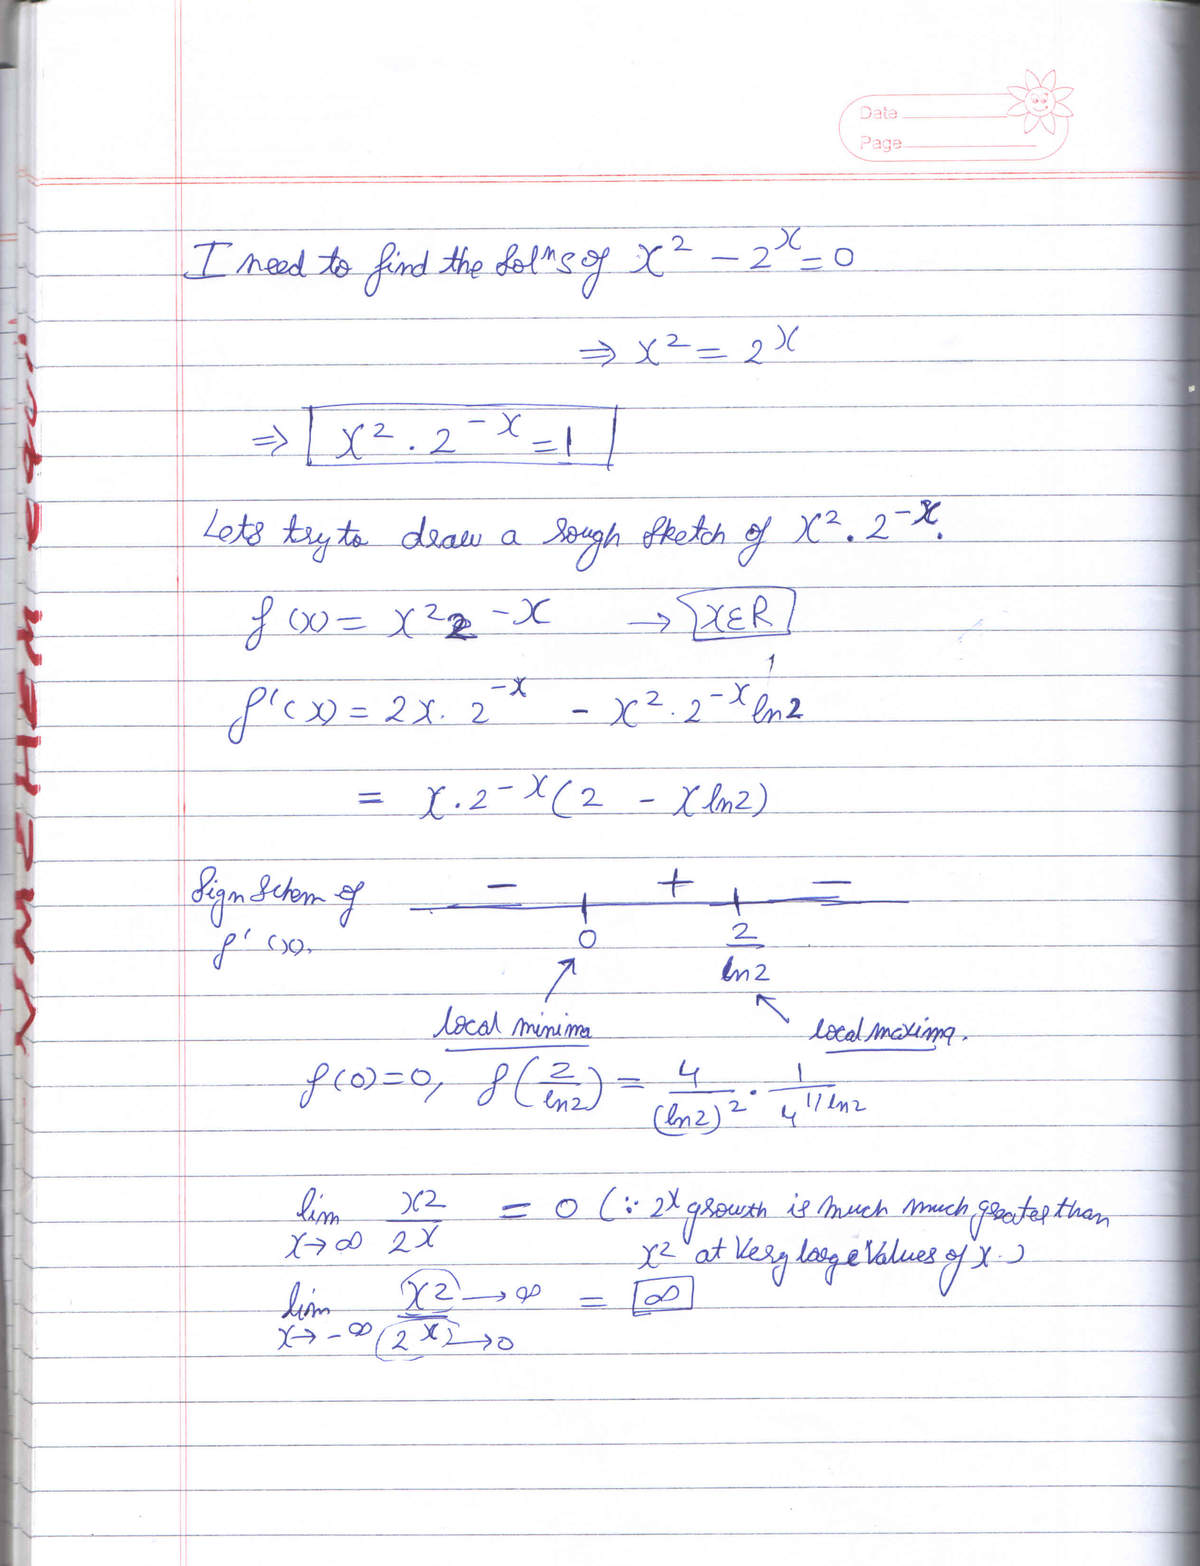 Date
Page
I need to find the solⁿs of x² - 2ˣ = 0
⇒ x² = 2ˣ
⇒ x² · 2⁻ˣ = 1
Lets try to draw a rough sketch of x² · 2⁻ˣ.
f(x) = x² 2⁻ˣ → x ∈ R
f'(x) = 2x · 2⁻ˣ - x² · 2⁻ˣ ln2
= x · 2⁻ˣ (2 - x ln2)
Sign Schem of - + -
f'(x). 0 2/ln2
local minima local maxima.
f(0) = 0, f(2/ln2) = 4/(ln2)² · 1/4^(1/ln2)
lim x→∞ x²/2ˣ = 0 (∵ 2ˣ growth is much much greater than
x² at very large values of x.)
lim x→-∞ (x²)→∞/(2ˣ)→0 = ∞